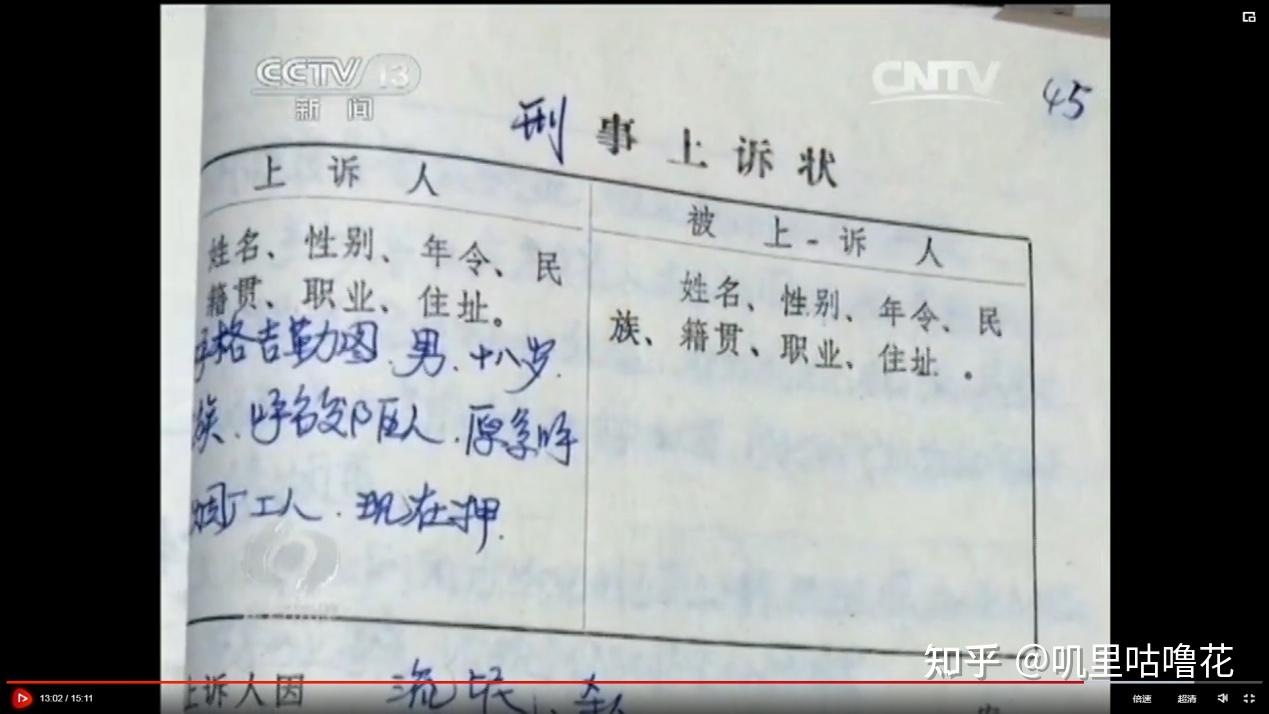 CCTV 13
新闻
CNTV
45
刑事上诉状
上诉人
被上诉人
姓名、性别、年令、民
籍贯、职业、住址。
姓名、性别、年令、民
族、籍贯、职业、住址。
格吉勒图.男.十八岁.
族.呼市郊区人.原系呼
烟厂工人.现在押.
上诉人因 流氓、杀
知乎 @叽里咕噜花
13:02 / 15:11
倍速 超清